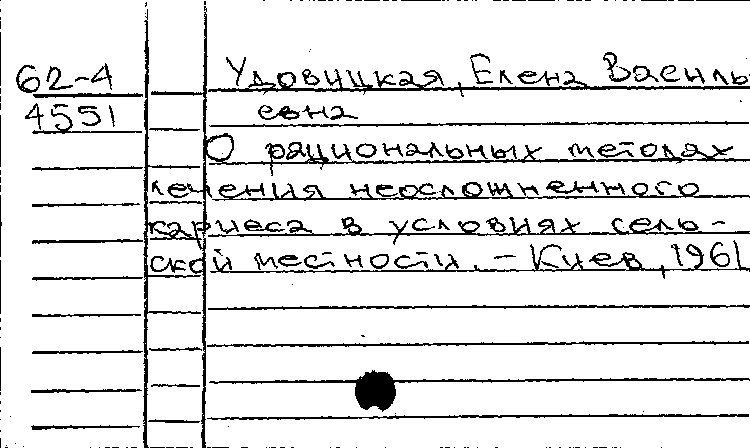 62-4 Удовицкая, Елена Василь
4551 евна
О рациональных методах
лечения неосложненного
кариеса в условиях сель-
ской местности. - Киев, 1961